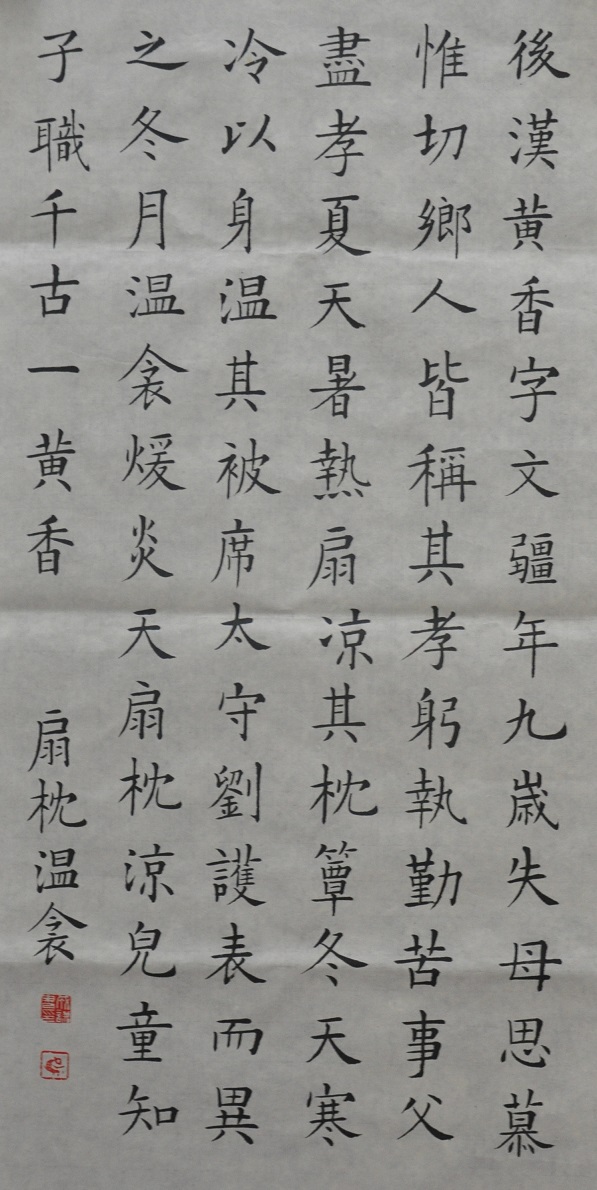 後漢黄香字文疆年九歳失母思慕
惟切鄉人皆稱其孝躬執勤苦事父
盡孝夏天暑熱扇凉其枕簟冬天寒
冷以身温其被席太守劉護表而異
之冬月温衾煖炎天扇枕涼兒童知
子職千古一黄香
扇枕温衾